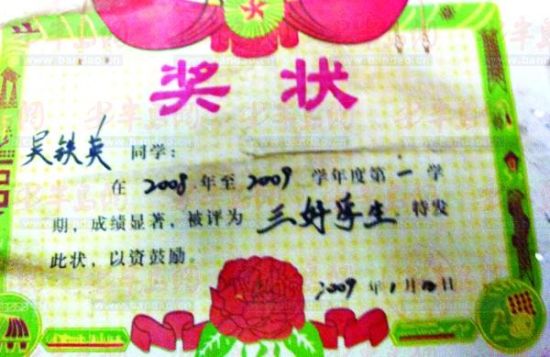 奖状
吴铁英 同学:
在 2008 年至 2009 学年度第 一 学
期,成绩显著,被评为 三好学生 特发
此状,以资鼓励。
2009 年 1 月 10 日
半岛网
www.bandao.cn